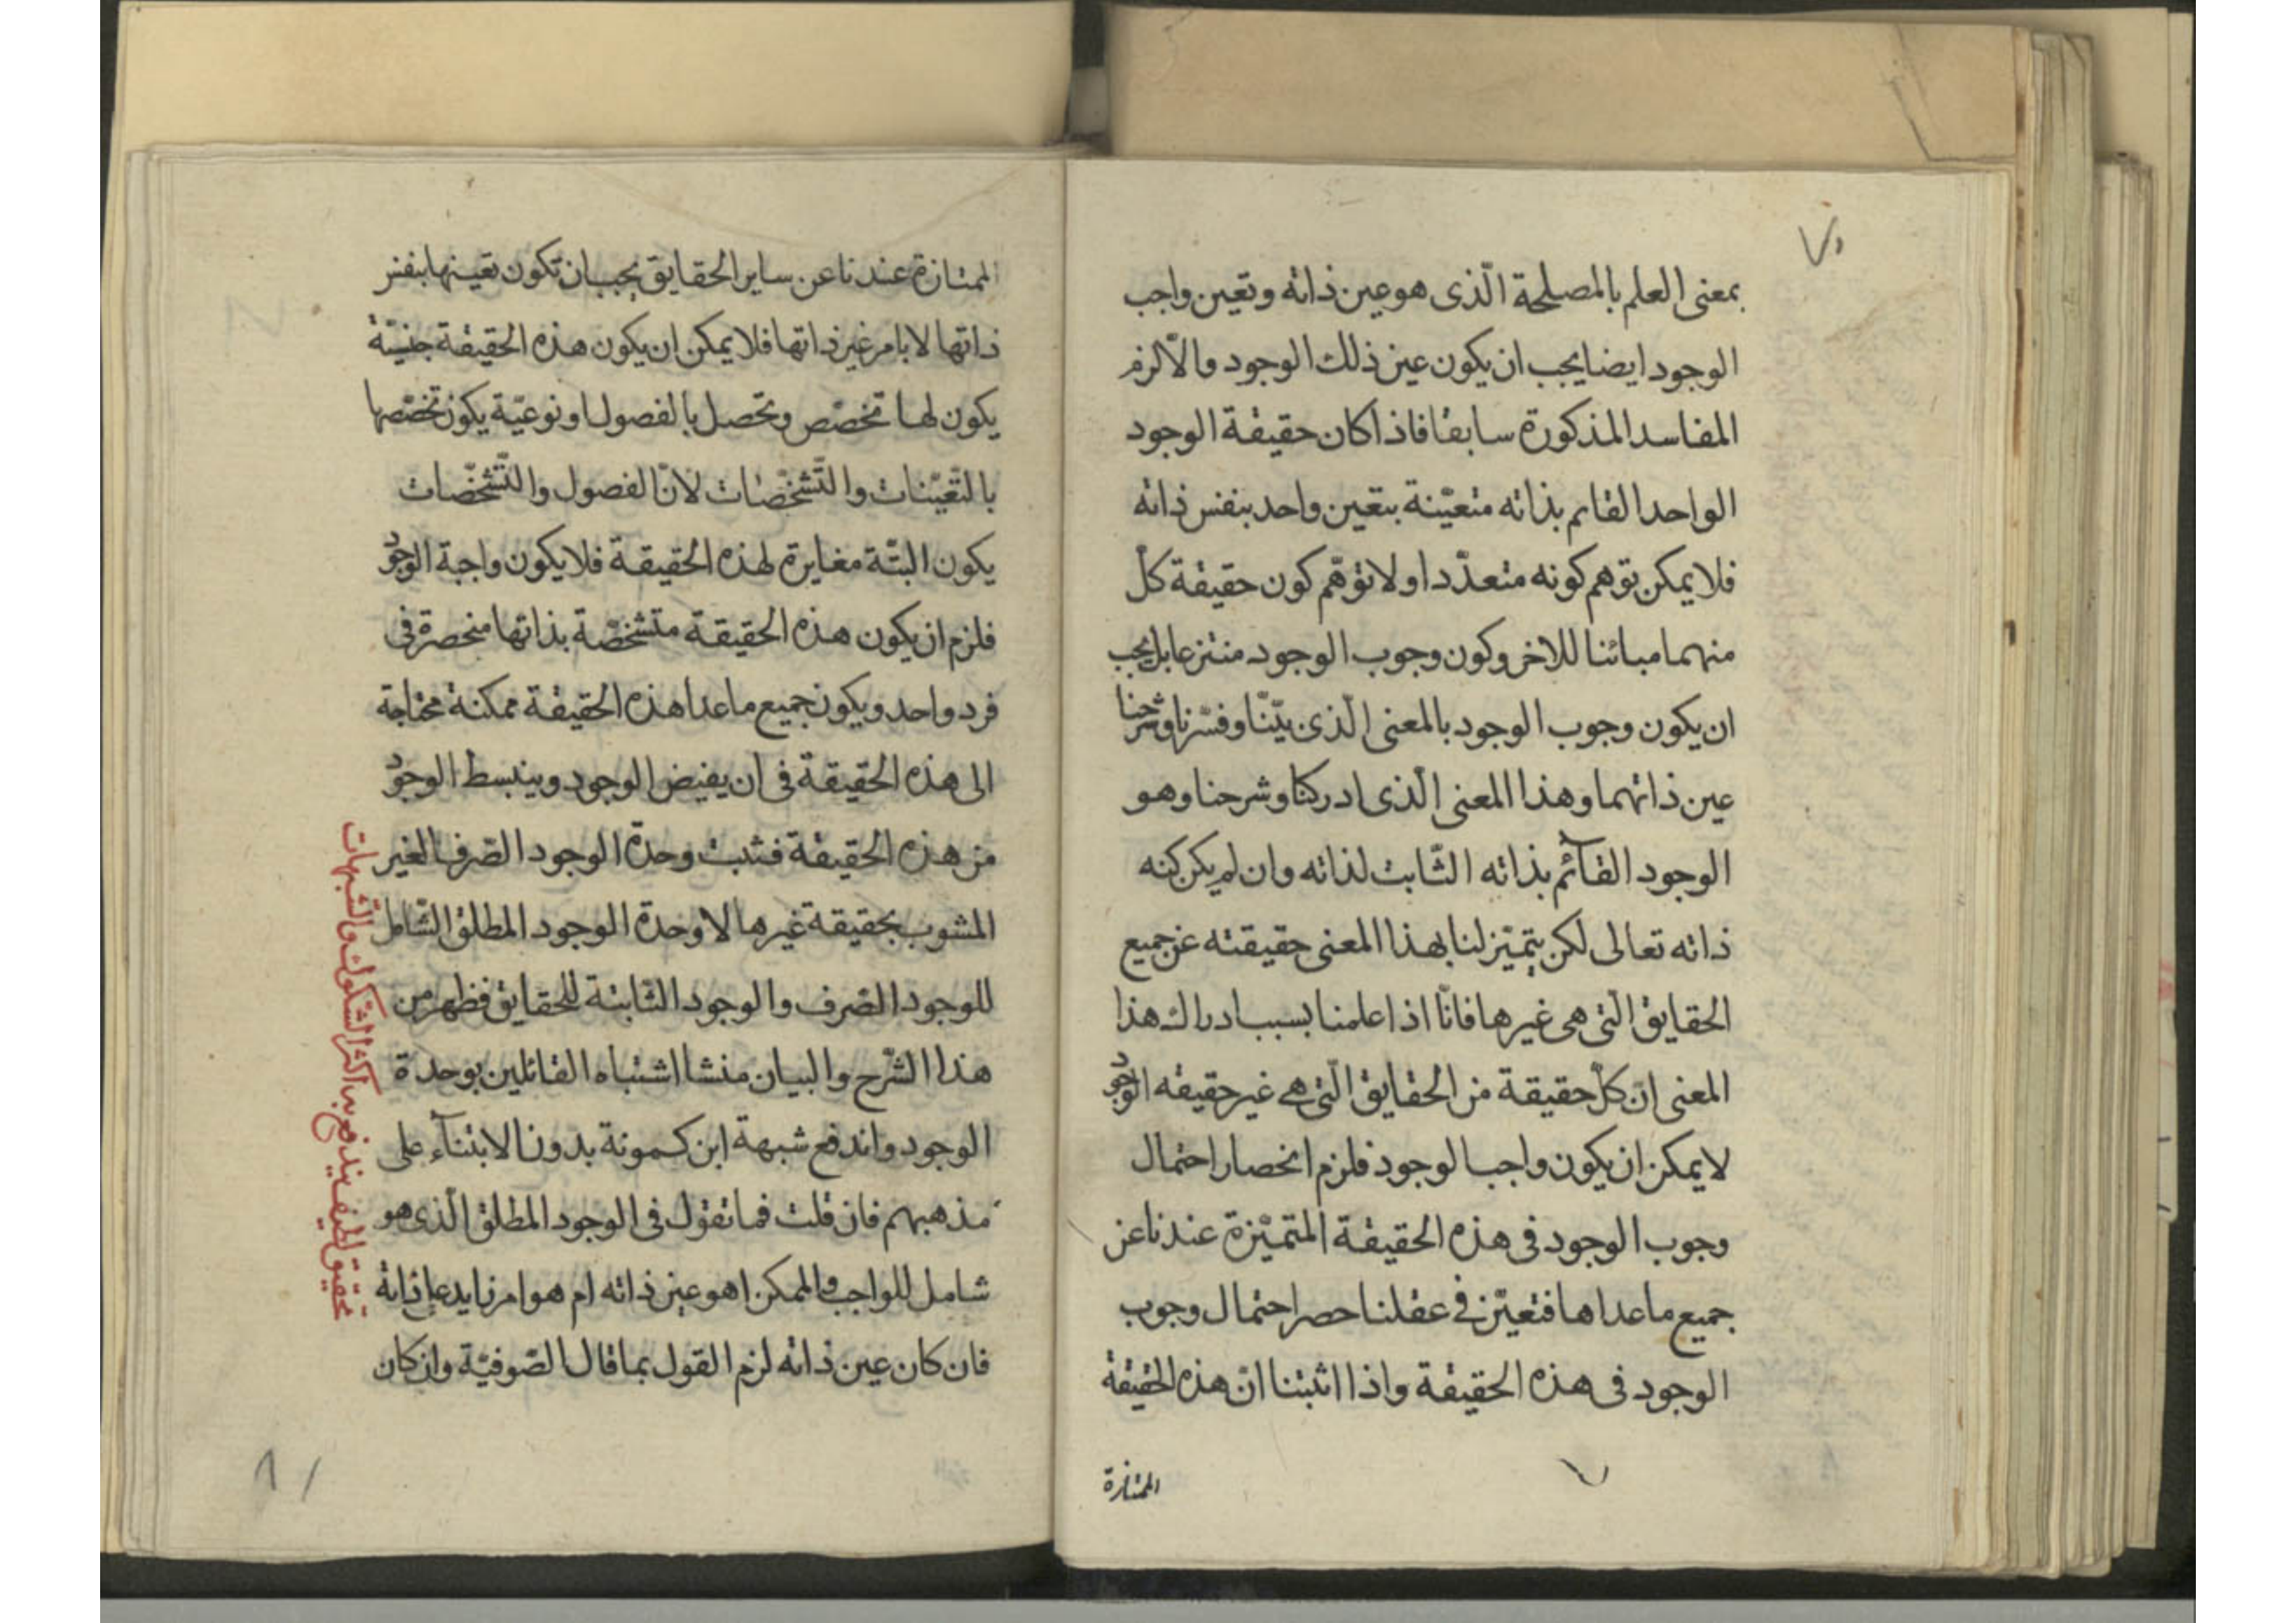 ٧
بمعنى العلم بالمصلحة الّذى هو عين ذاته وتعين واجب
الوجود ايضا يجب ان يكون عين ذلك الوجود والّا لزم
المفاسد المذكورة سابقا فاذا كان حقيقة الوجود
الواحد القايم بذاته متعيّنة بتعين واحد بنفس ذاته
فلا يمكن توهم كونه متعدّدا ولا توهّم كون حقيقة كلّ
منهما مبائنا للاخر وكون وجوب الوجود منتزعا بل يجب
ان يكون وجوب الوجود بالمعنى الّذى بيّنّا وفسّرنا وشرحنا
عين ذاتهما وهذا المعنى الّذى ادركنا وشرحنا وهو
الوجود القآئم بذاته الثّابت لذاته وان لم يكن كنه
ذاته تعالى لكن يتميّز لنا بهذا المعنى حقيقته عن جميع
الحقايق الّتى هى غيرها فانّا اذا علمنا بسبب ادراك هذا
المعنى انّ كلّ حقيقة من الحقايق الّتى هى غير حقيقه الوجود
لا يمكن ان يكون واجب الوجود فلزم انحصار احتمال
وجوب الوجود فى هذه الحقيقة المتميّزة عندنا عن
جميع ما عداها فتعيّن فى عقلنا حصر احتمال وجوب
الوجود فى هذه الحقيقة واذا اثبتنا انّ هذه الحقيقة
الممتازة
٧
الممتازة عندنا عن ساير الحقايق يجب ان تكون تعينها بنفس
ذاتها لا بامر غير ذاتها فلا يمكن ان يكون هذه الحقيقة جنسيّة
يكون لها تخصّص وتحصل بالفصول او نوعيّة يكون تخصّصها
بالتّعيّنات والتّشخّصات لانّ الفصول والتّشخّصات
يكون البتّة مغايرة لهذه الحقيقة فلا يكون واجبة الوجود
فلزم ان يكون هذه الحقيقة متشخّصة بذاتها منحصرة فى
فرد واحد ويكون جميع ما عدا هذه الحقيقة ممكنة محتاجة
الى هذه الحقيقة فى ان يفيض الوجود وينبسط الوجود
من هذه الحقيقة فثبت وحدة الوجود الصّرف الغير
المشوب بحقيقة غيرها لا وحدة الوجود المطلق الشّامل
للوجود الصّرف والوجود الثّابتة للحقايق فظهر من
هذا الشّرح والبيان منشا اشتباه القائلين بوحدة
الوجود واندفع شبهة ابن كمونة بدون الابتنآء على
مذهبهم فان قلت فما تقول فى الوجود المطلق الّذى هو
شامل للواجب والممكن اهو عين ذاته ام هو امر زايد على ذاته
فان كان عين ذاته لزم القول بما قال الصّوفيّة وان كان
تحقيق لطيف يندفع به اكثر الشّكوك والشّبهات
٨